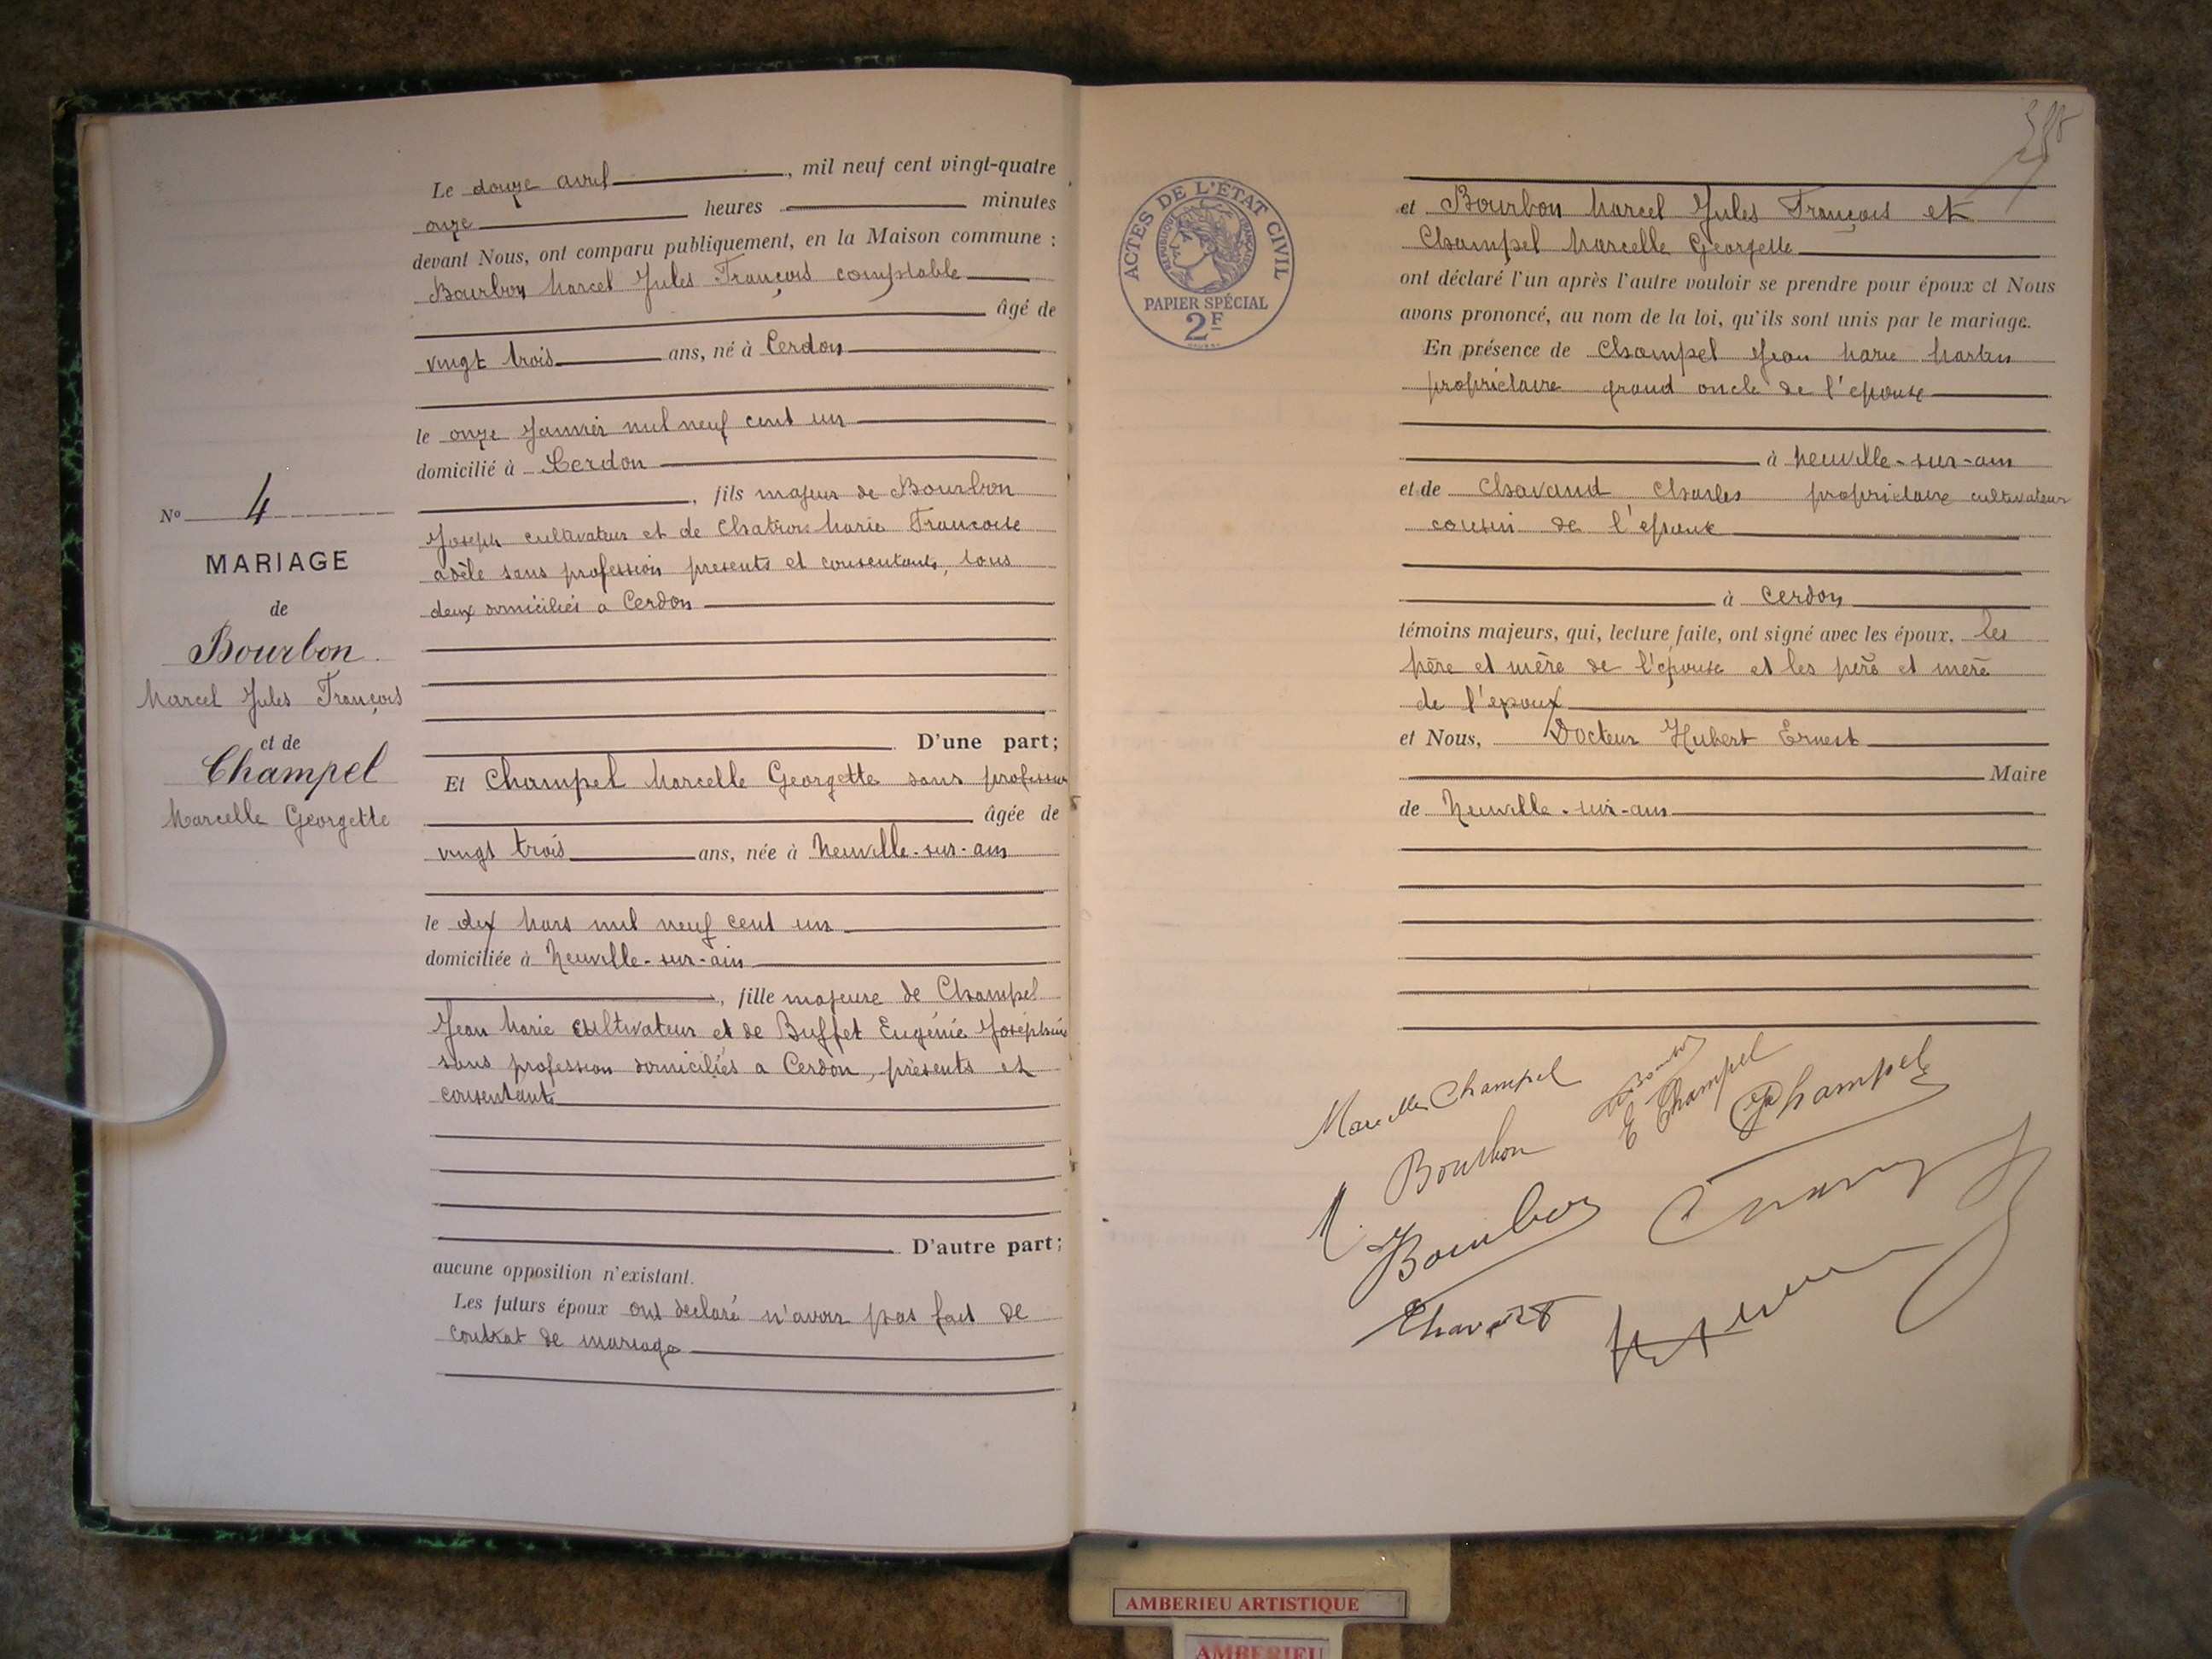 Le douze avril, mil neuf cent vingt-quatre
onze heures minutes
devant Nous, ont comparu publiquement, en la Maison commune :
Bourbon Marcel Jules François comptable
âgé de
vingt trois ans, né à Cerdon
le onze Janvier mil neuf cent un
domicilié à Cerdon
, fils majeur de Bourbon
Joseph cultivateur et de Marie Francoise
adèle sans profession presents et consentants, tous
deux domiciliés a Cerdon
D'une part;
Nº 4
MARIAGE
de
Bourbon
Marcel Jules François
et de
Champel
Marcelle Georgette
Et Champel Marcelle Georgette sans profession
âgée de
vingt trois ans, née à Neuville-sur-ain
le dix Mars mil neuf cent un
domiciliée à Neuville-sur-ain
, fille majeure de Champel
Jean Marie cultivateur et de Buffet Eugénie Joséphine
sans profession domiciliés a Cerdon, présents et
consentants
D'autre part;
aucune opposition n'existant.
Les futurs époux ont declaré n'avoir pas fait de
contrat de mariage
ACTES DE L'ÉTAT CIVIL
RÉPUBLIQUE FRANÇAISE
PAPIER SPÉCIAL
2F
et Bourbon Marcel Jules François et
Champel Marcelle Georgette
ont déclaré l'un après l'autre vouloir se prendre pour époux et Nous
avons prononcé, au nom de la loi, qu'ils sont unis par le mariage.
En présence de Champel Jean Marie Martin
propriétaire grand oncle de l'epouse
à Neuville-sur-ain
et de Chavand Charles propriétaire cultivateur
cousin de l'epouse
à Cerdon
témoins majeurs, qui, lecture faite, ont signé avec les époux, les
père et mère de l'épouse et les père et mère
de l'epoux
et Nous, Docteur Hubert Ernest
Maire
de Neuville-sur-ain
Marcelle Champel
E Champel
Champel
Bourbon
Bourbon
AMBERIEU ARTISTIQUE
AMBERIEU